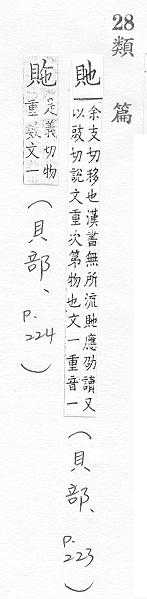 28類 篇
貤 余支切移也漢書無所流貤應劭讀又
以豉切說文重次第物也文一重音一
(貝部、p.223)
貤 是義切物
重數文一
(貝部、p.224)